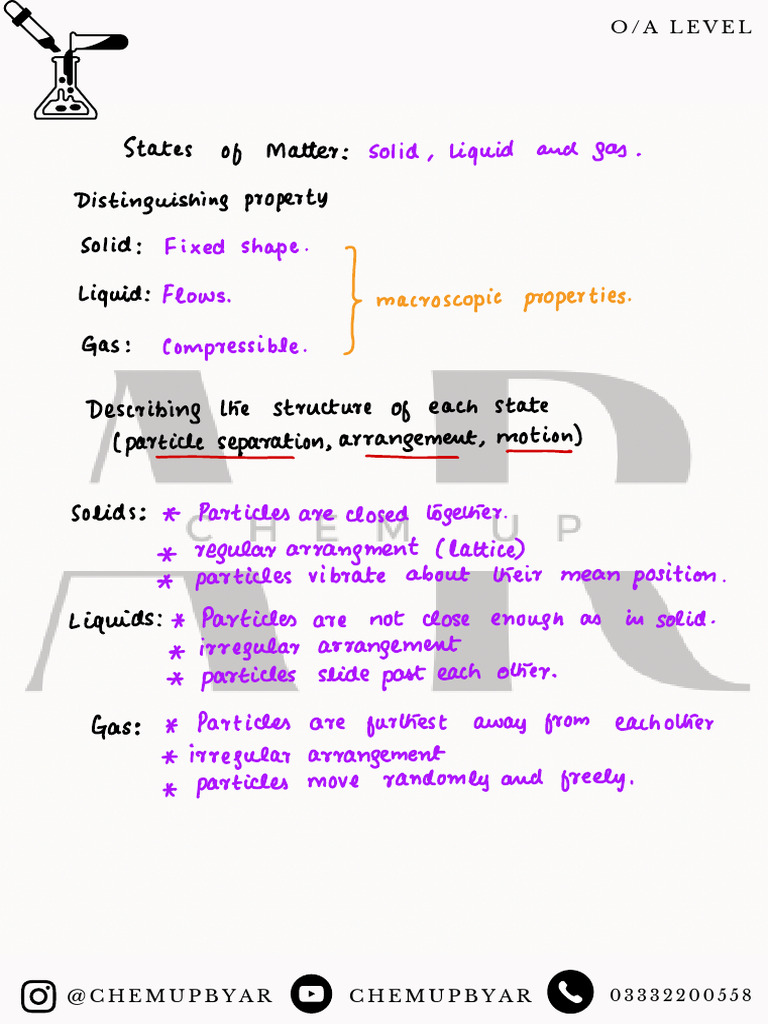 O/A LEVEL
States of Matter: Solid, Liquid and gas.
Distinguishing property
Solid: Fixed shape.
Liquid: Flows.
macroscopic properties.
Gas: Compressible.
Describing the structure of each state
(particle separation, arrangement, motion)
Solids: * Particles are closed together.
CHEM UP
* regular arrangment (lattice)
* particles vibrate about their mean position.
Liquids: * Particles are not close enough as in solid.
* irregular arrangement
* particles slide past each other.
AR
Gas: * Particles are furthest away from eachother
* irregular arrangement
* particles move randomly and freely.
@CHEMUPBYAR CHEMUPBYAR 03332200558